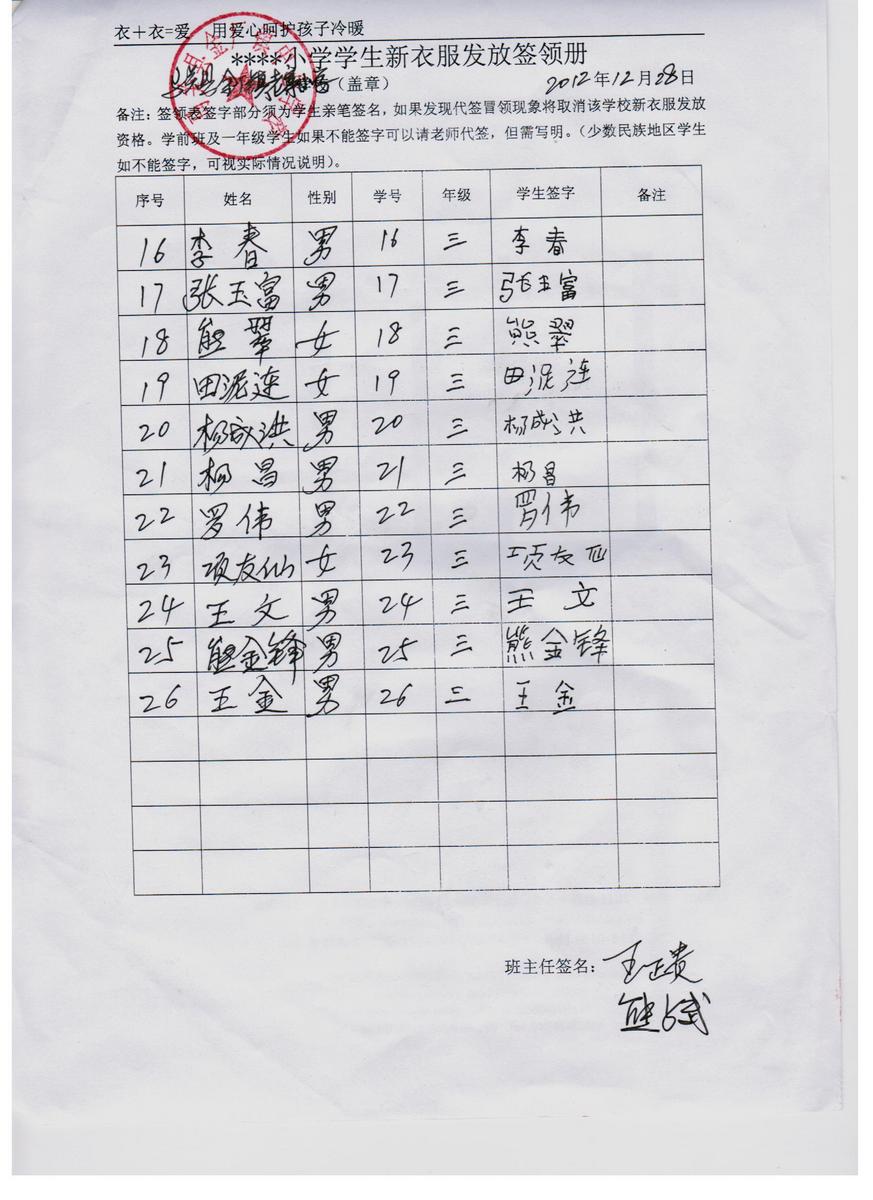 衣＋衣=爱　用爱心呵护孩子冷暖
****小学学生新衣服发放签领册
（盖章） 2012年12月28日
备注：签领表签字部分须为学生亲笔签名，如果发现代签冒领现象将取消该学校新衣服发放
资格。学前班及一年级学生如果不能签字可以请老师代签，但需写明。（少数民族地区学生
如不能签字，可视实际情况说明）。
序号 姓名 性别 学号 年级 学生签字 备注
16 李春 男 16 三 李春
17 张玉富 男 17 三 张玉富
18 熊翠 女 18 三 熊翠
19 田泥连 女 19 三 田泥连
20 杨成洪 男 20 三 杨成洪
21 杨昌 男 21 三 杨昌
22 罗伟 男 22 三 罗伟
23 项友仙 女 23 三 项友仙
24 王文 男 24 三 王文
25 熊金锋 男 25 三 熊金锋
26 王金 男 26 三 王金
班主任签名：王正贵